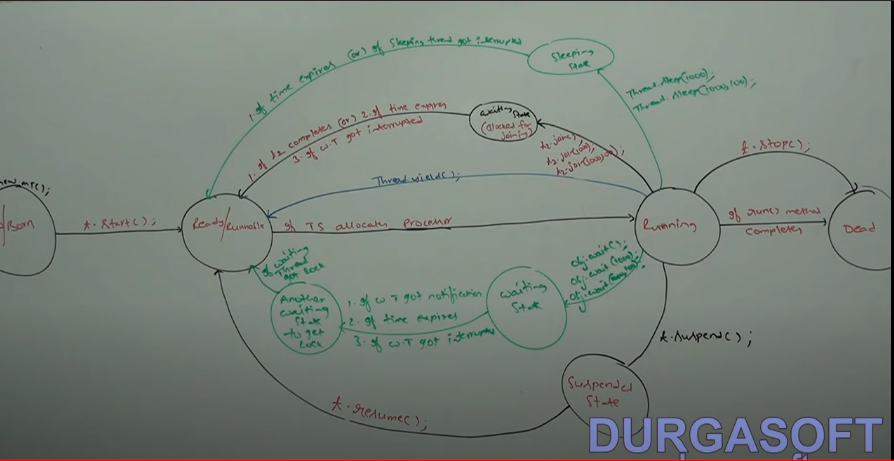 1. If time expires (or) if sleeping thread got interrupted
Sleeping
State
Thread.sleep(1000);
Thread.sleep(1000,100);
1. If t2 completes (or) 2. If time expires
3. If W.T got interrupted
waiting
State
(Blocked for
joining)
t2.join();
t2.join(1000);
t2.join(1000,100);
t.stop();
Thread.yield();
/Born
t.start();
Ready/Runnable
If TS allocates processor
Running
If run() method
completes
Dead
If waiting
Thread
got lock
Another
waiting
State
to get
lock
1. If W.T got notification
2. If time expires
3. If W.T got interrupted
waiting
State
obj.wait();
obj.wait(1000);
t.suspend();
Suspended
State
t.resume();
DURGASOFT